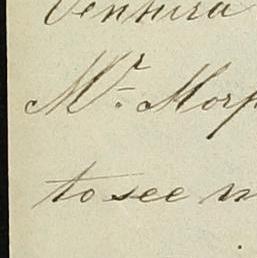 Ventura
Mr. Morp
to see